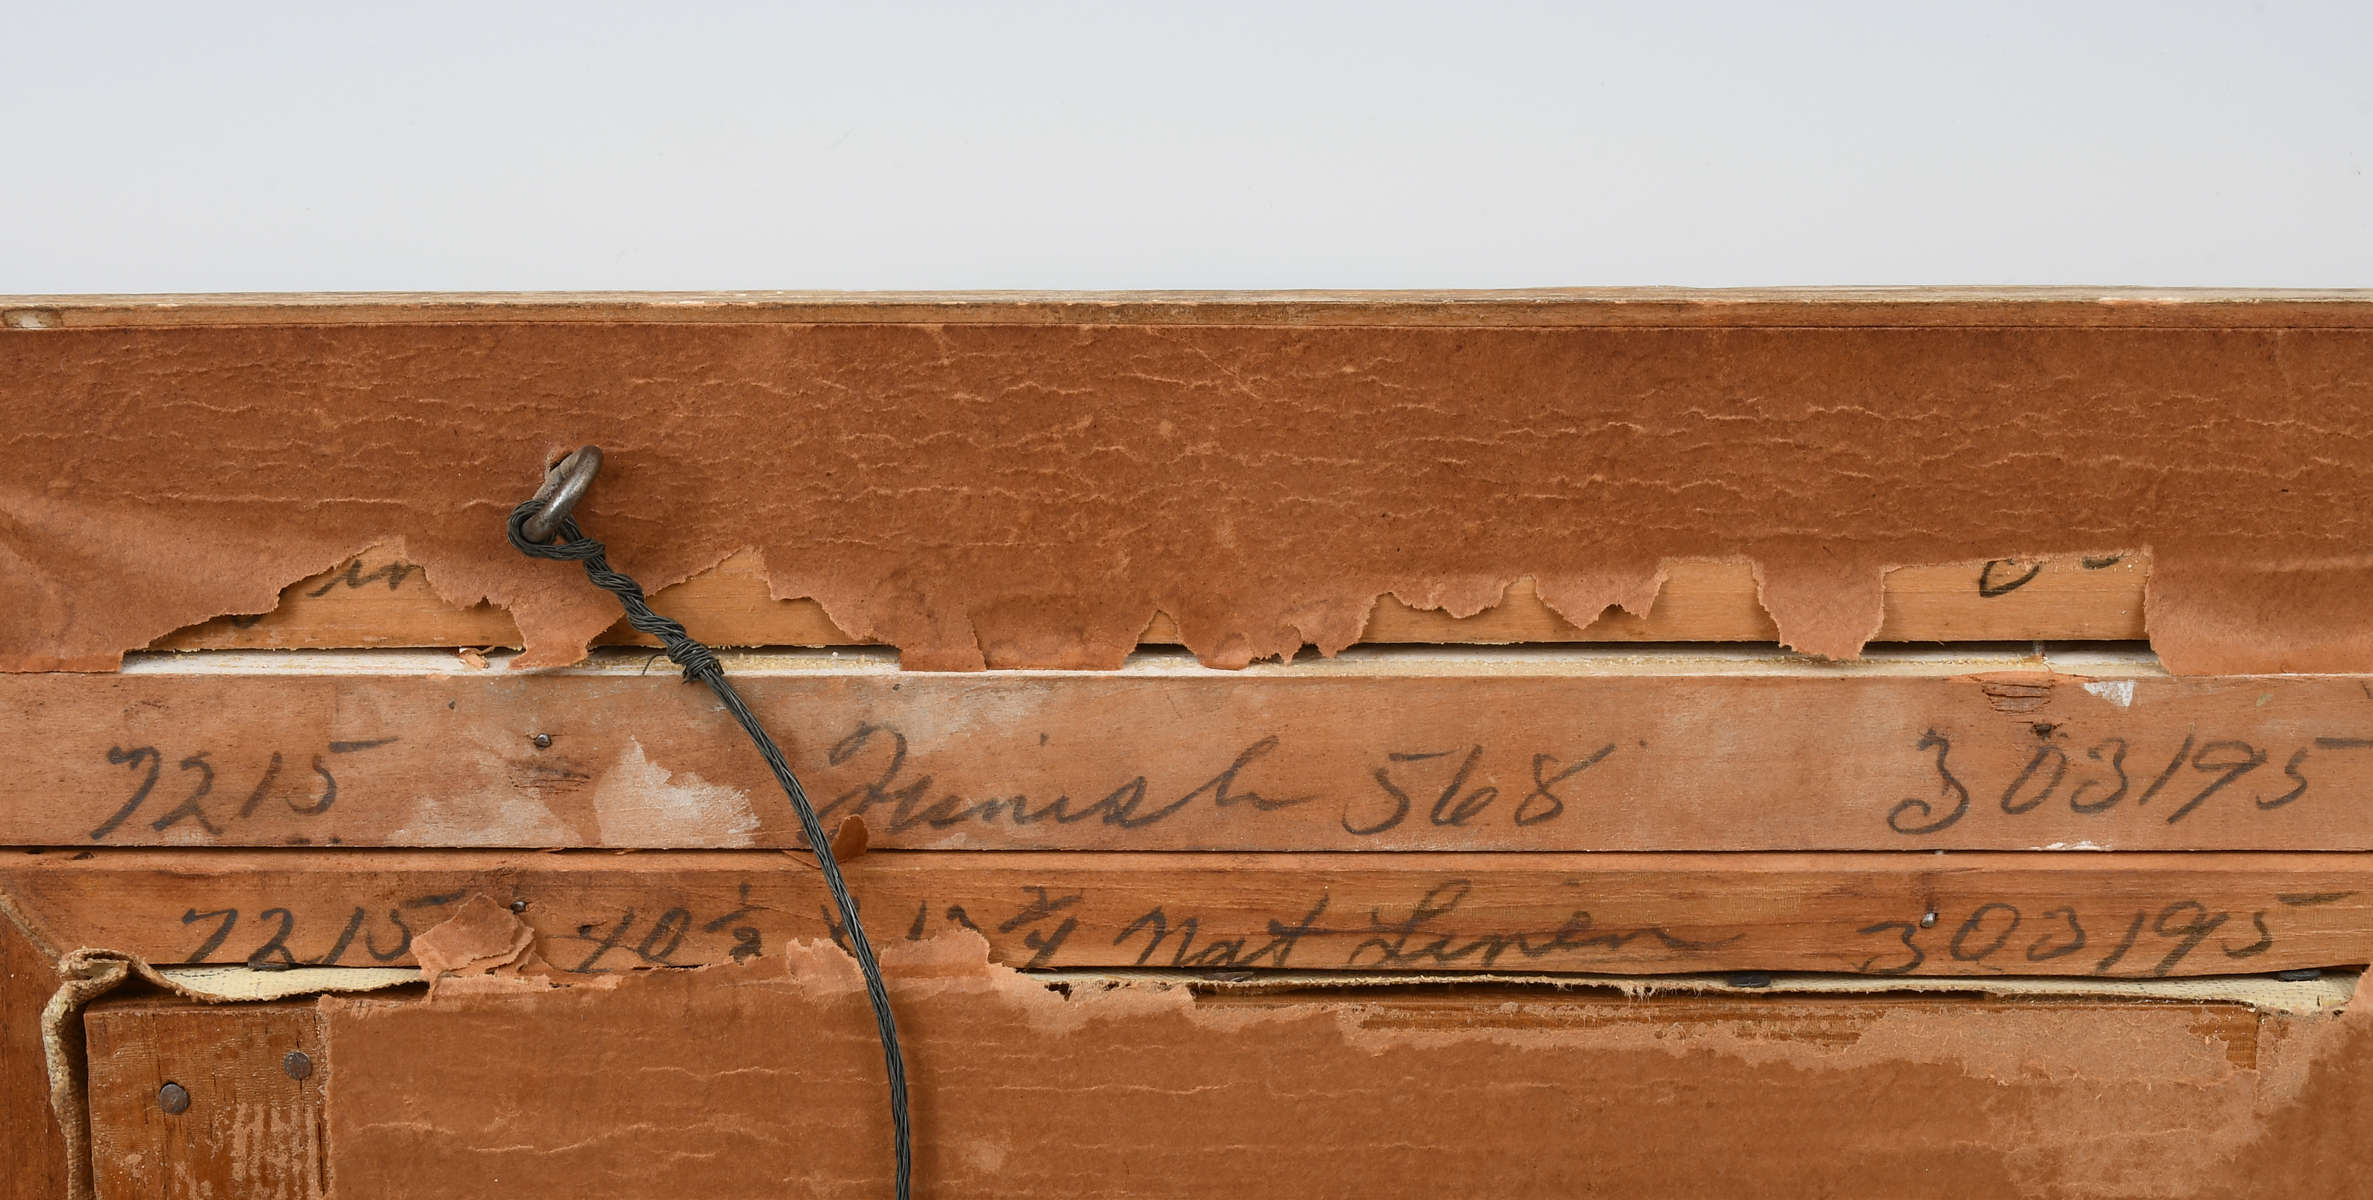 in
7215 Finish 568 303195
7215 10 1/2 x 3/4 Nat Linen 303195